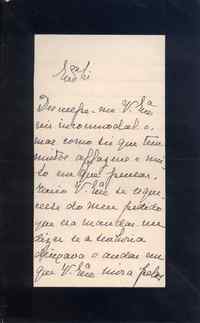 Desculpe-me V. Ex.ª
vir incommodal-o,
mas como sei que tem
muitos affazeres e mui-
to em que pensar,
V. Ex.ª se esque-
cesse do meu pedido
que era mandar-me
dizer se a senhora
o andar em
que V. Ex.ª mora pelos